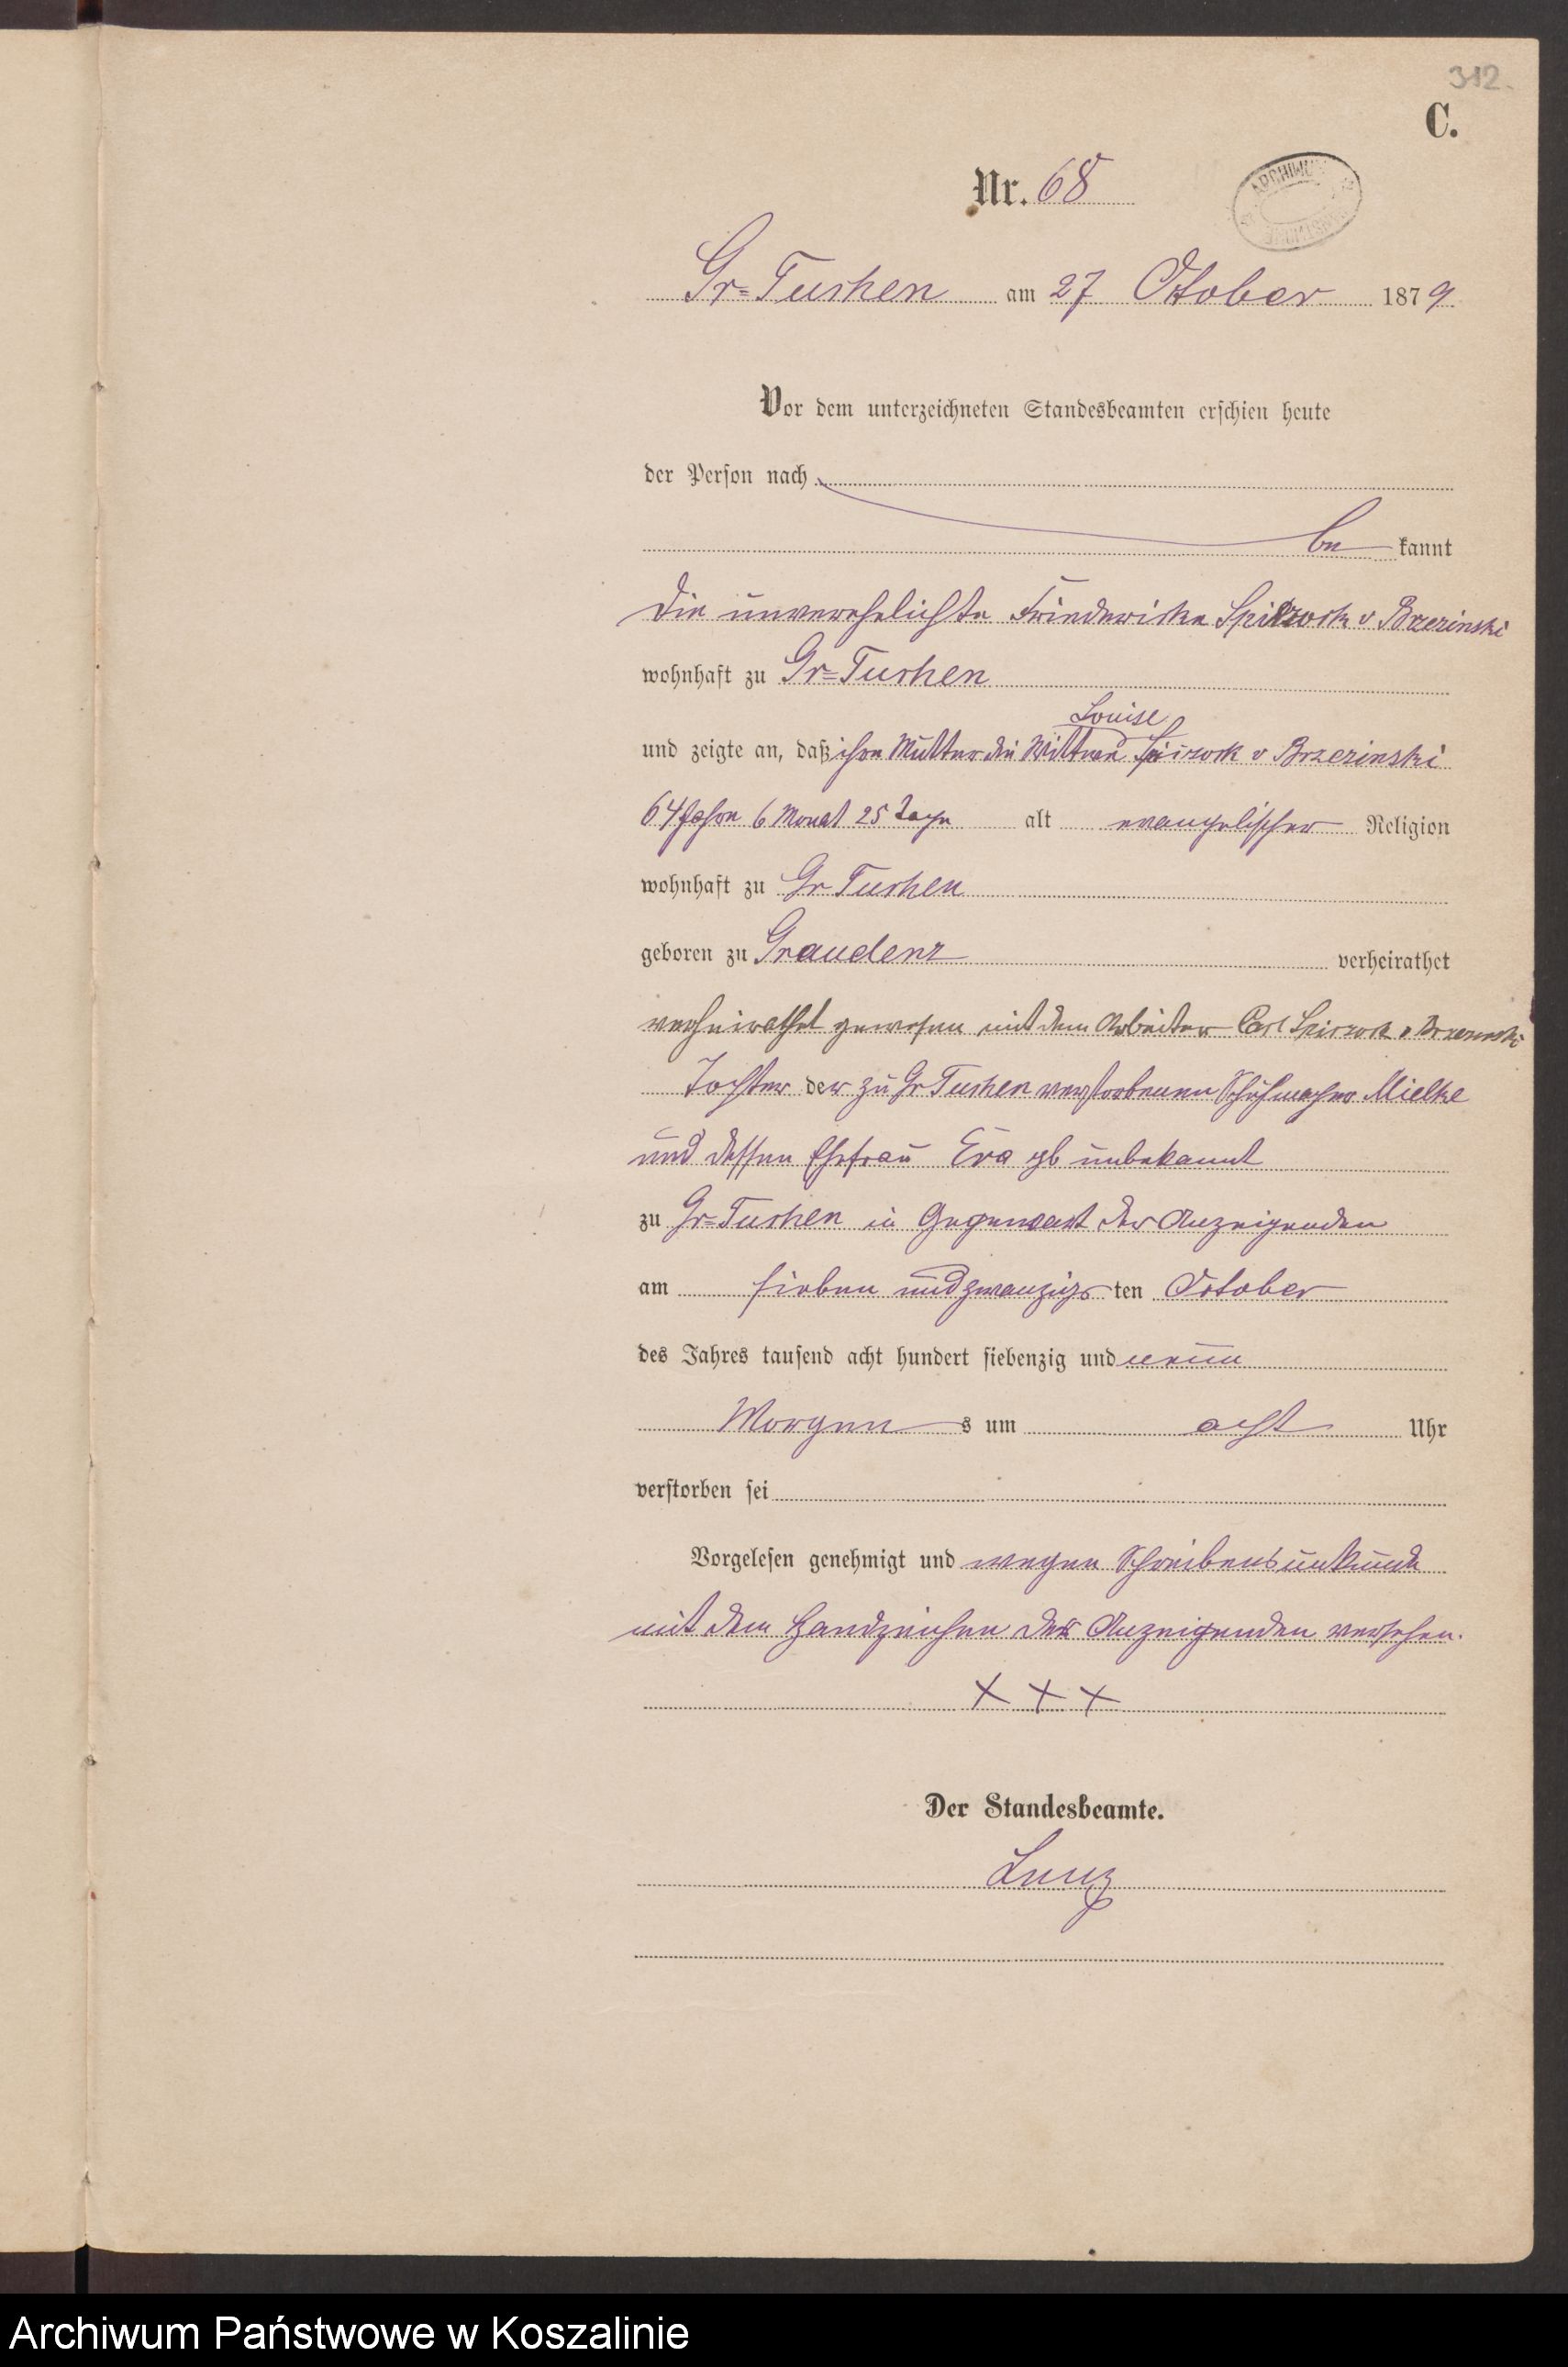 312.
C.
Nr. 68
ARCHIWUM
Gr. Tuchen am 27 October 1879
Vor dem unterzeichneten Standesbeamten erschien heute
der Person nach
be kannt
die unverehelichte Friederike Spiczock v Brzezinski
wohnhaft zu Gr. Tuchen
Louise
und zeigte an, daß ihre Mutter die Wittwe Spiczock v Brzezinski
64 Jahre 6 Monat 25 Tage alt evangelischer Religion
wohnhaft zu Gr Tuchen
geboren zu Graudenz verheirathet
verheirathet gewesen mit dem Arbeiter Carl Spiczock v Brzezinski
Tochter der zu Gr Tuchen verstorbenen Schuhmacher Mielke
und dessen Ehefrau Eva gb unbekannt
zu Gr. Tuchen in Gegenwart der Anzeigenden
am sieben und zwanzigs ten October
des Jahres tausend acht hundert siebenzig und neun
Morgen s um acht Uhr
verstorben sei
Vorgelesen genehmigt und wegen Schreibensunkunde
mit dem Handzeichen der Anzeigenden versehen.
+ + +
Der Standesbeamte.
Lenz
Archiwum Państwowe w Koszalinie